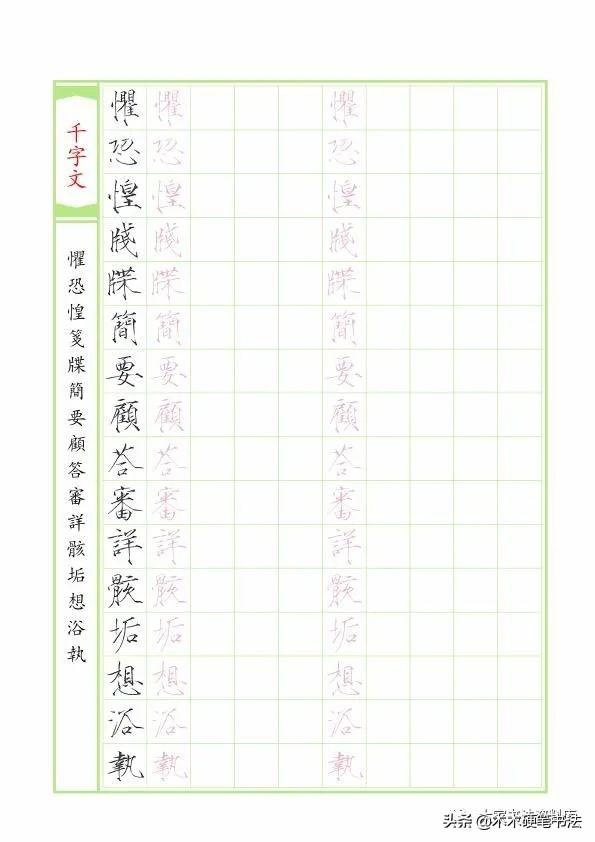 千字文
懼恐惶箋牒簡要顧答審詳骸垢想浴執
懼恐惶牋牒簡要顧荅審詳骸垢想浴執
懼恐惶牋牒簡要顧荅審詳骸垢想浴執
懼恐惶牋牒簡要顧荅審詳骸垢想浴執
头条 @木木硬笔书法